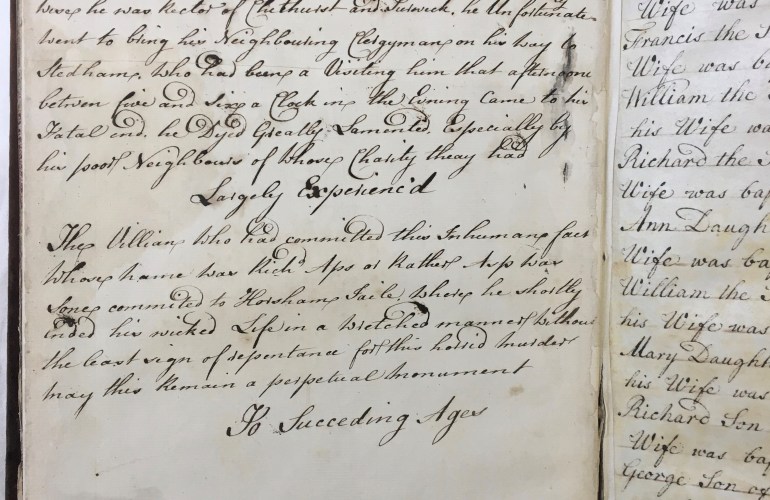 were he was Rector of Chithurst and Iarwick. he Unfortunate
went to bring his Neighbouring Clergyman on his way to
Stedham, Who had being a Visiting him that afternoone
betven five and Six a Clock in the Evning Came to his
Fatal end. he Dyed Greatly Lamented. Especially by
his poor Neighbours of whose Charity theay had
Largely Experienc'd
The Villian Who had committed this Inhuman fact
Whose name was Richd Aps or Rather Asp was
Sone committed to Horsham Jaile, Where he shortly
ended his wicked Life in a Wretched manner Without
the least sign of repentance for this horrid murder
may this Remain a perpetual monument
To Succeding Ages
Wife was
Francis the S
Wife was ba
William the
his Wife was
Richard the S
Wife was bap
Ann Daugh
Wife was ba
William the S
his Wife was
Mary Daugh
his Wife was
Richard Son
Wife was bap
George Son of